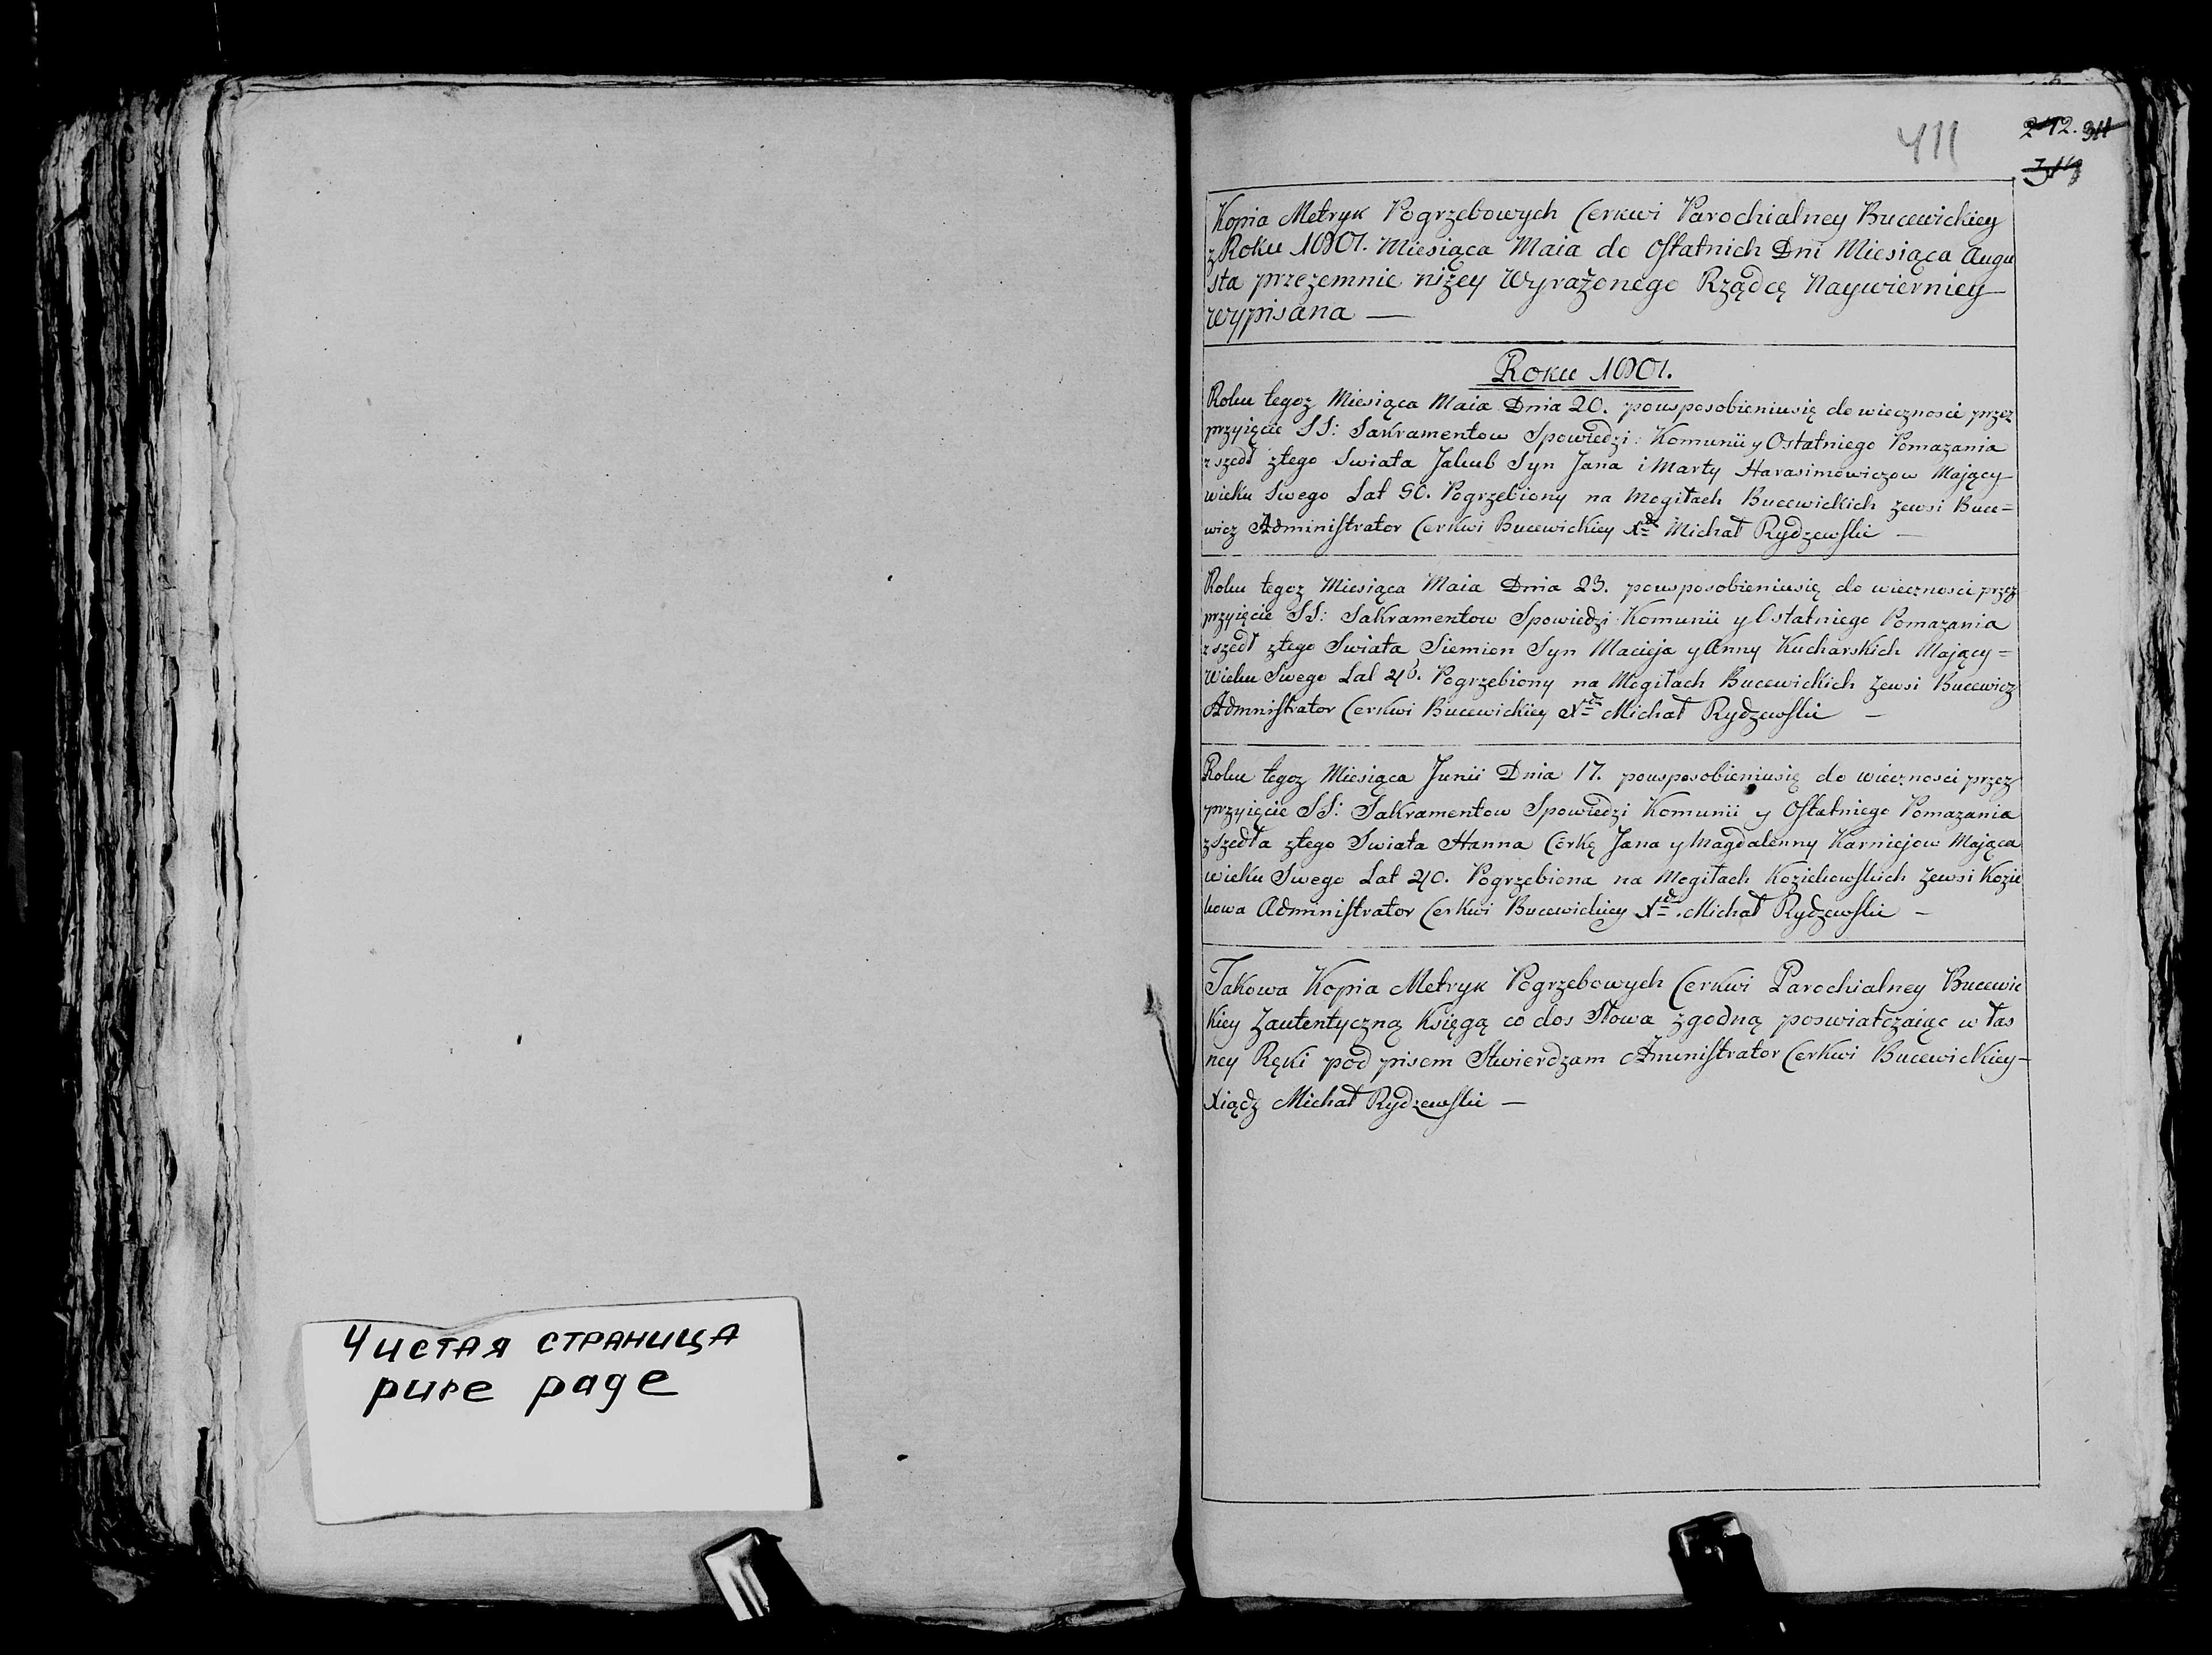 Чистая страница
pure page
411
212. 311
Kopia Metryk Pogrzebowych Cerkwi Parochialney Bucewickiey
z Roku 1801. Miesiąca Maia do Ostatnich Dni Miesiąca Augu
sta przezemnie niżey Wyrażonego Rządcę Naywierniey
wypisana —
Roku 1801.
Roku tegoz Miesiąca Maia Dnia 20. pousposobieniusię do wiecznosci przez
przyięcie SS: Sakramentow Spowiedzi: Komunii y Ostatniego Pomazania
zszedł ztego Swiata Jakub Syn Jana i Marty Harasimowiczow Maiący
wieku Swego Lat 50. Pogrzebiony na Mogiłach Bucewickich zewsi Buce=
wicz Administrator Cerkwi Bucewickiey Xdz Michał Rydzewski —
Roku tegoz Miesiąca Maia Dnia 23. pousposobieniusię do wiecznosci przez
przyięcie SS: Sakramentow Spowiedzi Komunii y Ostatniego Pomazania
zszedł ztego Swiata Siemion Syn Macieja y Anny Kucharskich Maiący=
Wieku Swego Lat Pogrzebiony na Mogiłach Bucewickich zewsi Bucewicz
Admnistrator Cerkwi Bucewickiey Xdz Michał Rydzewski —
Roku tegoz Miesiąca Junii Dnia 17. pousposobieniusię do wiecznosci przez
przyięcie SS: Sakramentow Spowiedzi Komunii y Ostatniego Pomazania
zszedła ztego Swiata Hanna Corkę Jana y Magdalenny Karniejow Maiąca
wieku Swego Lat 40. Pogrzebiona na Mogiłach Kozichowskich zewsi Kozie
kowa Administrator Cerkwi Bucewickiey Xdz Michał Rydzewski —
Takowa Kopia Metryk Pogrzebowych Cerkwi Parochialney Bucewic
kiey Zautentyczną Księgą co dos Słowa zgodną poswiatczaiąc w łas
ney Ręki pod pisem Stwierdzam Administrator Cerkwi Bucewickiey—
Xiądz Michał Rydzewski —